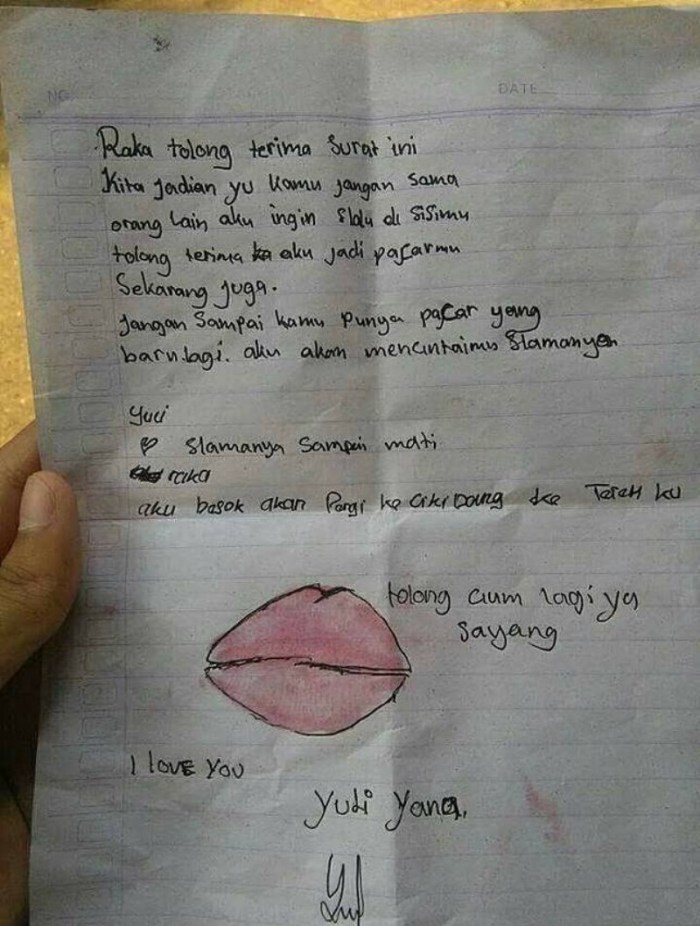 NO.
DATE
Raka tolong terima surat ini
Kita jadian yu kamu jangan sama
orang lain aku ingin slalu di sisimu
tolong terima aku jadi pacarmu
Sekarang juga.
Jangan Sampai kamu punya pacar yang
baru lagi. aku akan mencintaimu Slamanya
Slamanya Sampai mati
raka
aku besok akan Pergi ke ke
tolong cium lagi ya
sayang
I love you
Yuli Yana,